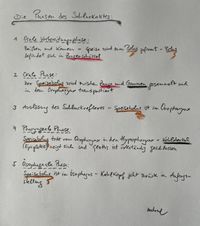 Die Phasen des Schluckaktes
1 Orale Vorbereitungsphase:
Beißen und Kauen - Speise wird zum Bolus geformt - Bolus
befindet sich in Zungenschüssel
2 Orale Phase:
Der Speisebolus wird zwischen Zunge und Gaumen gesammelt und
in den Oropharynx transportiert
3 Auslösung des Schluckreflexes - Speisebolus ist im Oropharynx
4 Pharyngeale Phase:
Speisebolus tritt vom Oropharynx in den Hypopharynx - Kehldeckel
(Epiglottis) neigt sich und Glottis ist vollständig geschlossen
5 Ösophageale Phase:
Speisebolus ist im Ösophagus - Kehlkopf geht zurück in Anfangs-
stellung